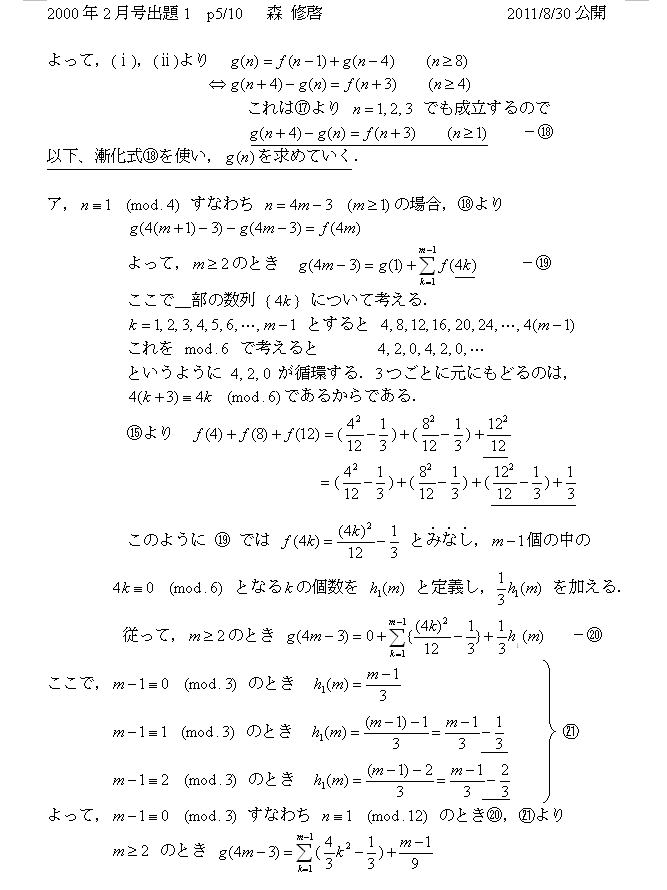 2000年2月号出題1 p5/10 森 修啓 2011/8/30公開
よって，(ⅰ)，(ⅱ)より g(n)=f(n−1)+g(n−4) (n≥8)
⇔g(n+4)−g(n)=f(n+3) (n≥4)
これは⑰より n=1,2,3 でも成立するので
g(n+4)−g(n)=f(n+3) (n≥1) −⑱
以下、漸化式⑱を使い，g(n)を求めていく．
ア，n≡1 (mod.4) すなわち n=4m−3 (m≥1)の場合，⑱より
g(4(m+1)−3)−g(4m−3)=f(4m)
よって，m≥2のとき g(4m−3)=g(1)+∑_{k=1}^{m−1} f(4k) −⑲
ここで__部の数列{4k} について考える．
k=1,2,3,4,5,6,⋯,m−1 とすると 4,8,12,16,20,24,⋯,4(m−1)
これを mod.6 で考えると 4,2,0,4,2,0,⋯
というように 4,2,0 が循環する．3つごとに元にもどるのは，
4(k+3)≡4k (mod.6)であるからである．
⑮より f(4)+f(8)+f(12)=(4²/12−1/3)+(8²/12−1/3)+12²/12
=(4²/12−1/3)+(8²/12−1/3)+(12²/12−1/3)+1/3
このように ⑲ では f(4k)=(4k)²/12−1/3 とみなし，m−1個の中の
4k≡0 (mod.6) となるkの個数を h₁(m) と定義し，1/3h₁(m) を加える．
従って，m≥2のとき g(4m−3)=0+∑_{k=1}^{m−1}{(4k)²/12−1/3}+1/3h₁(m) −⑳
ここで，m−1≡0 (mod.3) のとき h₁(m)=(m−1)/3
m−1≡1 (mod.3) のとき h₁(m)=((m−1)−1)/3=(m−1)/3−1/3 ㉑
m−1≡2 (mod.3) のとき h₁(m)=((m−1)−2)/3=(m−1)/3−2/3
よって，m−1≡0 (mod.3) すなわち n≡1 (mod.12) のとき⑳，㉑より
m≥2 のとき g(4m−3)=∑_{k=1}^{m−1}(4/3k²−1/3)+(m−1)/9